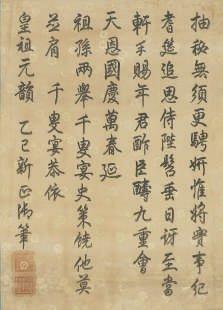 抽秘無須更騁妍惟將實事紀
耆筵追思侍陛髫垂日訝至當
軒手賜年君酢臣醻九重會
天恩國慶萬春延
祖孫兩舉千叟宴史策饒他莫
並肩 千叟宴恭依
皇祖元韻 乙巳新正御筆